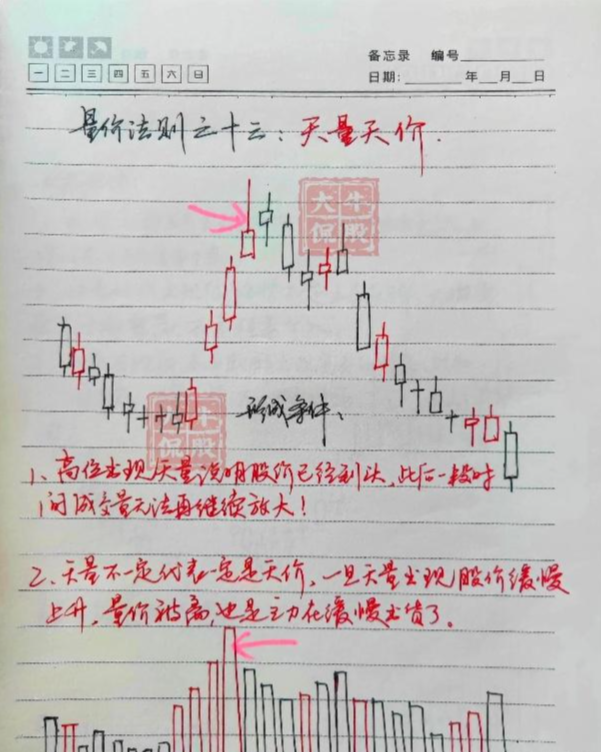 备忘录 编号
一 二 三 四 五 六 日
日期: 年 月 日
量价法则之十三：天量天价.
大牛
侃股
大牛
侃股
形成条件、
1、高位出现天量说明股价已经到头,此后一段时
间成交量无法再继续放大!
2、天量不一定代表一定是天价,一旦天量出现,股价缓慢
上升,量价 ,也是主力在缓慢出货了。